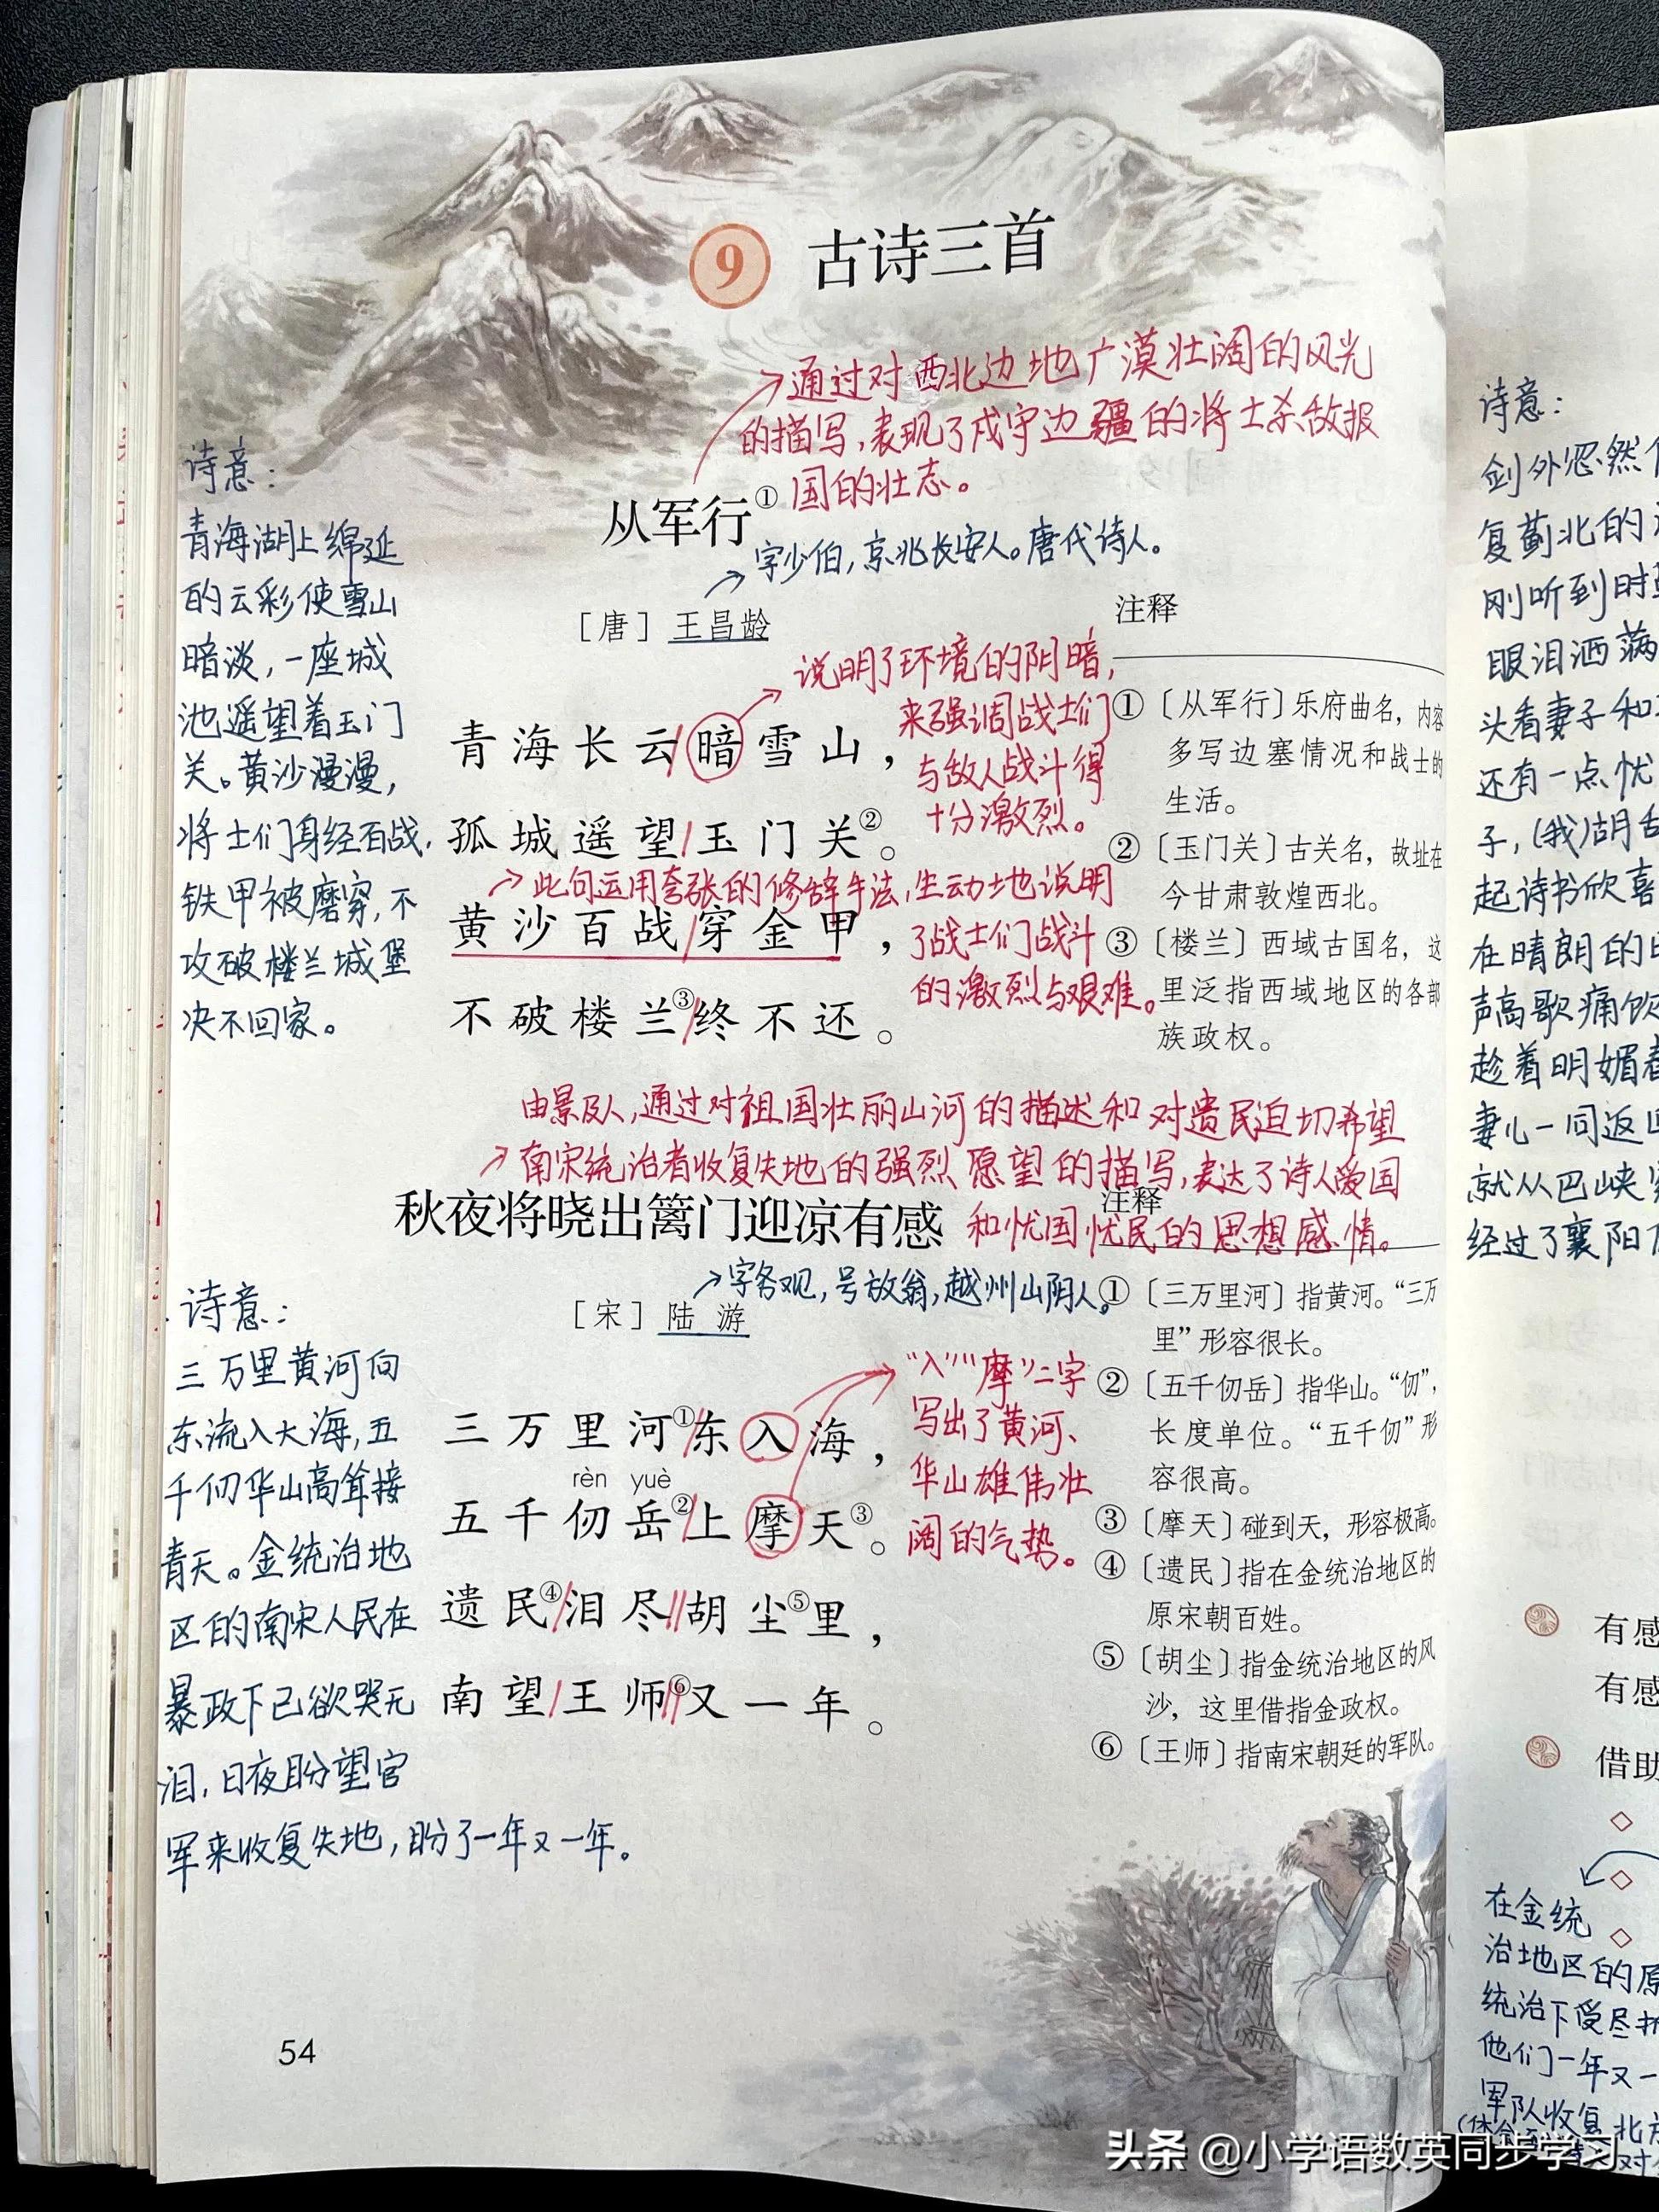 9 古诗三首
通过对西北边地广漠壮阔的风光
的描写,表现了戍守边疆的将士杀敌报
国的壮志。
从军行①
字少伯,京兆长安人。唐代诗人。
[唐] 王昌龄
诗意:
青海湖上绵延
的云彩使雪山
暗淡,一座城
池遥望着玉门
关。黄沙漫漫,
将士们身经百战,
铁甲被磨穿,不
攻破楼兰城堡
决不回家。
说明了环境的阴暗,
来强调战士们
与敌人战斗得
十分激烈。
青海长云/暗雪山,
孤城遥望/玉门关②。
此句运用夸张的修辞手法,生动地说明
了战士们战斗
的激烈与艰难。
黄沙百战/穿金甲,
不破楼兰③/终不还。
注释
①〔从军行〕乐府曲名,内容
多写边塞情况和战士的
生活。
②〔玉门关〕古关名,故址在
今甘肃敦煌西北。
③〔楼兰〕西域古国名,这
里泛指西域地区的各部
族政权。
由景及人,通过对祖国壮丽山河的描述和对遗民迫切希望
南宋统治者收复失地的强烈愿望的描写,表达了诗人爱国
和忧国忧民的思想感情。
秋夜将晓出篱门迎凉有感
字务观,号放翁,越州山阴人。
[宋] 陆游
诗意:
三万里黄河向
东流入大海,五
千仞华山高耸接
青天。金统治地
区的南宋人民在
暴政下已欲哭无
泪,日夜盼望官
军来收复失地,盼了一年又一年。
三万里河①/东入海,
rèn yuè
五千仞岳②/上摩天③。
遗民④/泪尽//胡尘⑤里,
南望/王师⑥//又一年。
“入”“摩”二字
写出了黄河、
华山雄伟壮
阔的气势。
注释
①〔三万里河〕指黄河。“三万
里”形容很长。
②〔五千仞岳〕指华山。“仞”,
长度单位。“五千仞”形
容很高。
③〔摩天〕碰到天,形容极高。
④〔遗民〕指在金统治地区的
原宋朝百姓。
⑤〔胡尘〕指金统治地区的风
沙,这里借指金政权。
⑥〔王师〕指南宋朝廷的军队。
54
诗意:
剑外忽然
复蓟北的
刚听到时
眼泪洒满
头看妻子和
还有一点忧
子,(我)胡
起诗书欣喜
在晴朗的
声高歌痛饮
趁着明媚
妻儿一同返
就从巴峡
经过了襄阳
有感
有感
借助
在金统
治地区的原
统治下受尽
他们一年又一
军队收复北
头条 @小学语数英同步学习